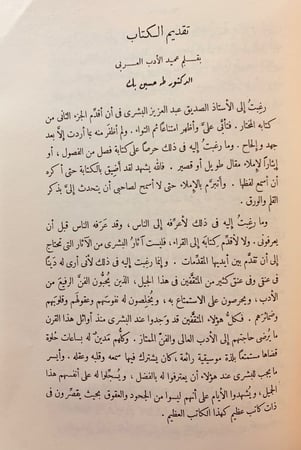 تقديم الكتاب
بقلم عميد الأدب العربى
الدكتور طه حسين بك
رغبتُ إلى الأستاذ الصديق عبد العزيز البشرى فى أن أقدّم الجزء الثانى من
كتابه المختار. فتأبَّى علىَّ وأظهر امتناعًا ثم التواء. ولم أظفر منه بما أردت إلّا بعد
جهد وإلحاح. وما رغبتُ إليه فى ذلك حرصًا على كتابة فصل من الفصول، أو
إيثارًا لإملاء مقال طويل أو قصير. فالله يشهد لقد أضيق بالكتابة حتى أكره
أن أسمع لفظها. وأتبرّم بالإملاء حتى لا أسمح لصاحبى أن يتحدث إلىَّ بذكر
القلم والورق.
وما رغبت إليه فى ذلك لأعرّفه إلى الناس، وقد عرَفه الناس قبل أن
يعرفونى. ولا لأقدّم كتابه إلى القراء، فليست آثارُ البشرى من الآثار التى تحتاج
إلى أن تُقدَّم بين أيديها المقدّمات. وإنما رغبت إليه فى ذلك لأنى أرى له دَيْنًا
فى عنقى وفى عنق كثير من المثقّفين فى هذا الجيل، الذين يُحبُّون الفنَّ الرفيع من
الأدب، ويحرصون على الاستمتاع به، ويُخلصون له نفوسَهم وعقولَهم وقلوبَهم
وضمائرَهم. فكلُّ هؤلاء المثقّفين قد وَجدوا عند البشرى منذ أوائل هذا القرن
ما يُرضى حاجتهم إلى الأدب العالى والفنِّ الممتاز. وكلُّهم مَدين له بساعات حُلوة
قضاها مستمتعًا بلذة موسيقية رائعة، كان يشترك فيها سمعه وقلبه وعقله. وأيسر
ما يجب للبشرى عند هؤلاء أن يعترفوا له بالفضل، ويُسجِّلوا له على أنفسهم هذا
الجميل، ويُشهدوا الأيام على أنهم ليسوا من الجحود والعقوق بحيث يقصِّرون فى
ذات كاتب عظيم كهذا الكاتب العظيم.